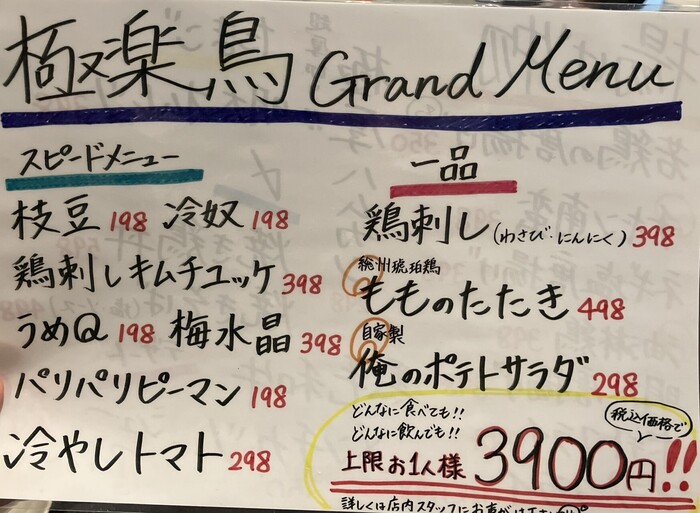 極楽鳥 Grand Menu
スピードメニュー
枝豆 198 冷奴 198
鶏刺しキムチユッケ 398
うめQ 198 梅水晶 398
パリパリピーマン 198
冷やしトマト 298
一品
鶏刺し(わさび・にんにく) 398
琥珀鶏
もものたたき 498
自家製
俺のポテトサラダ 298
どんなに食べても!!
どんなに飲んでも!!
税込価格で
上限お1人様 3900円!!
詳しくは店内スタッフにお声がけ下さい